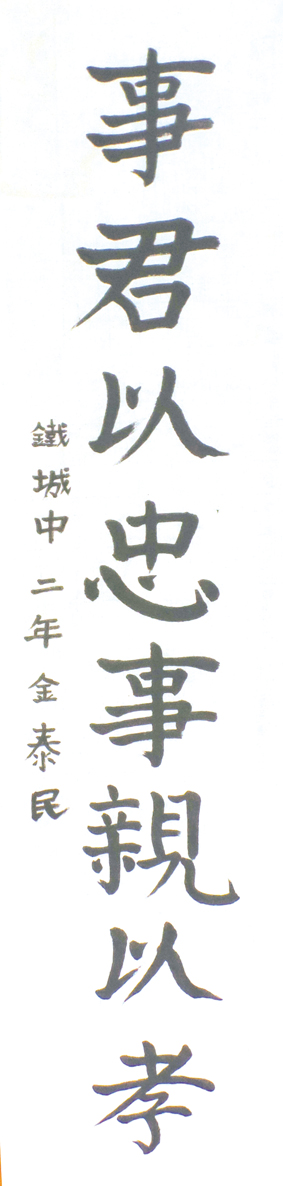 事君以忠事親以孝
鐵城中 二年 金泰民